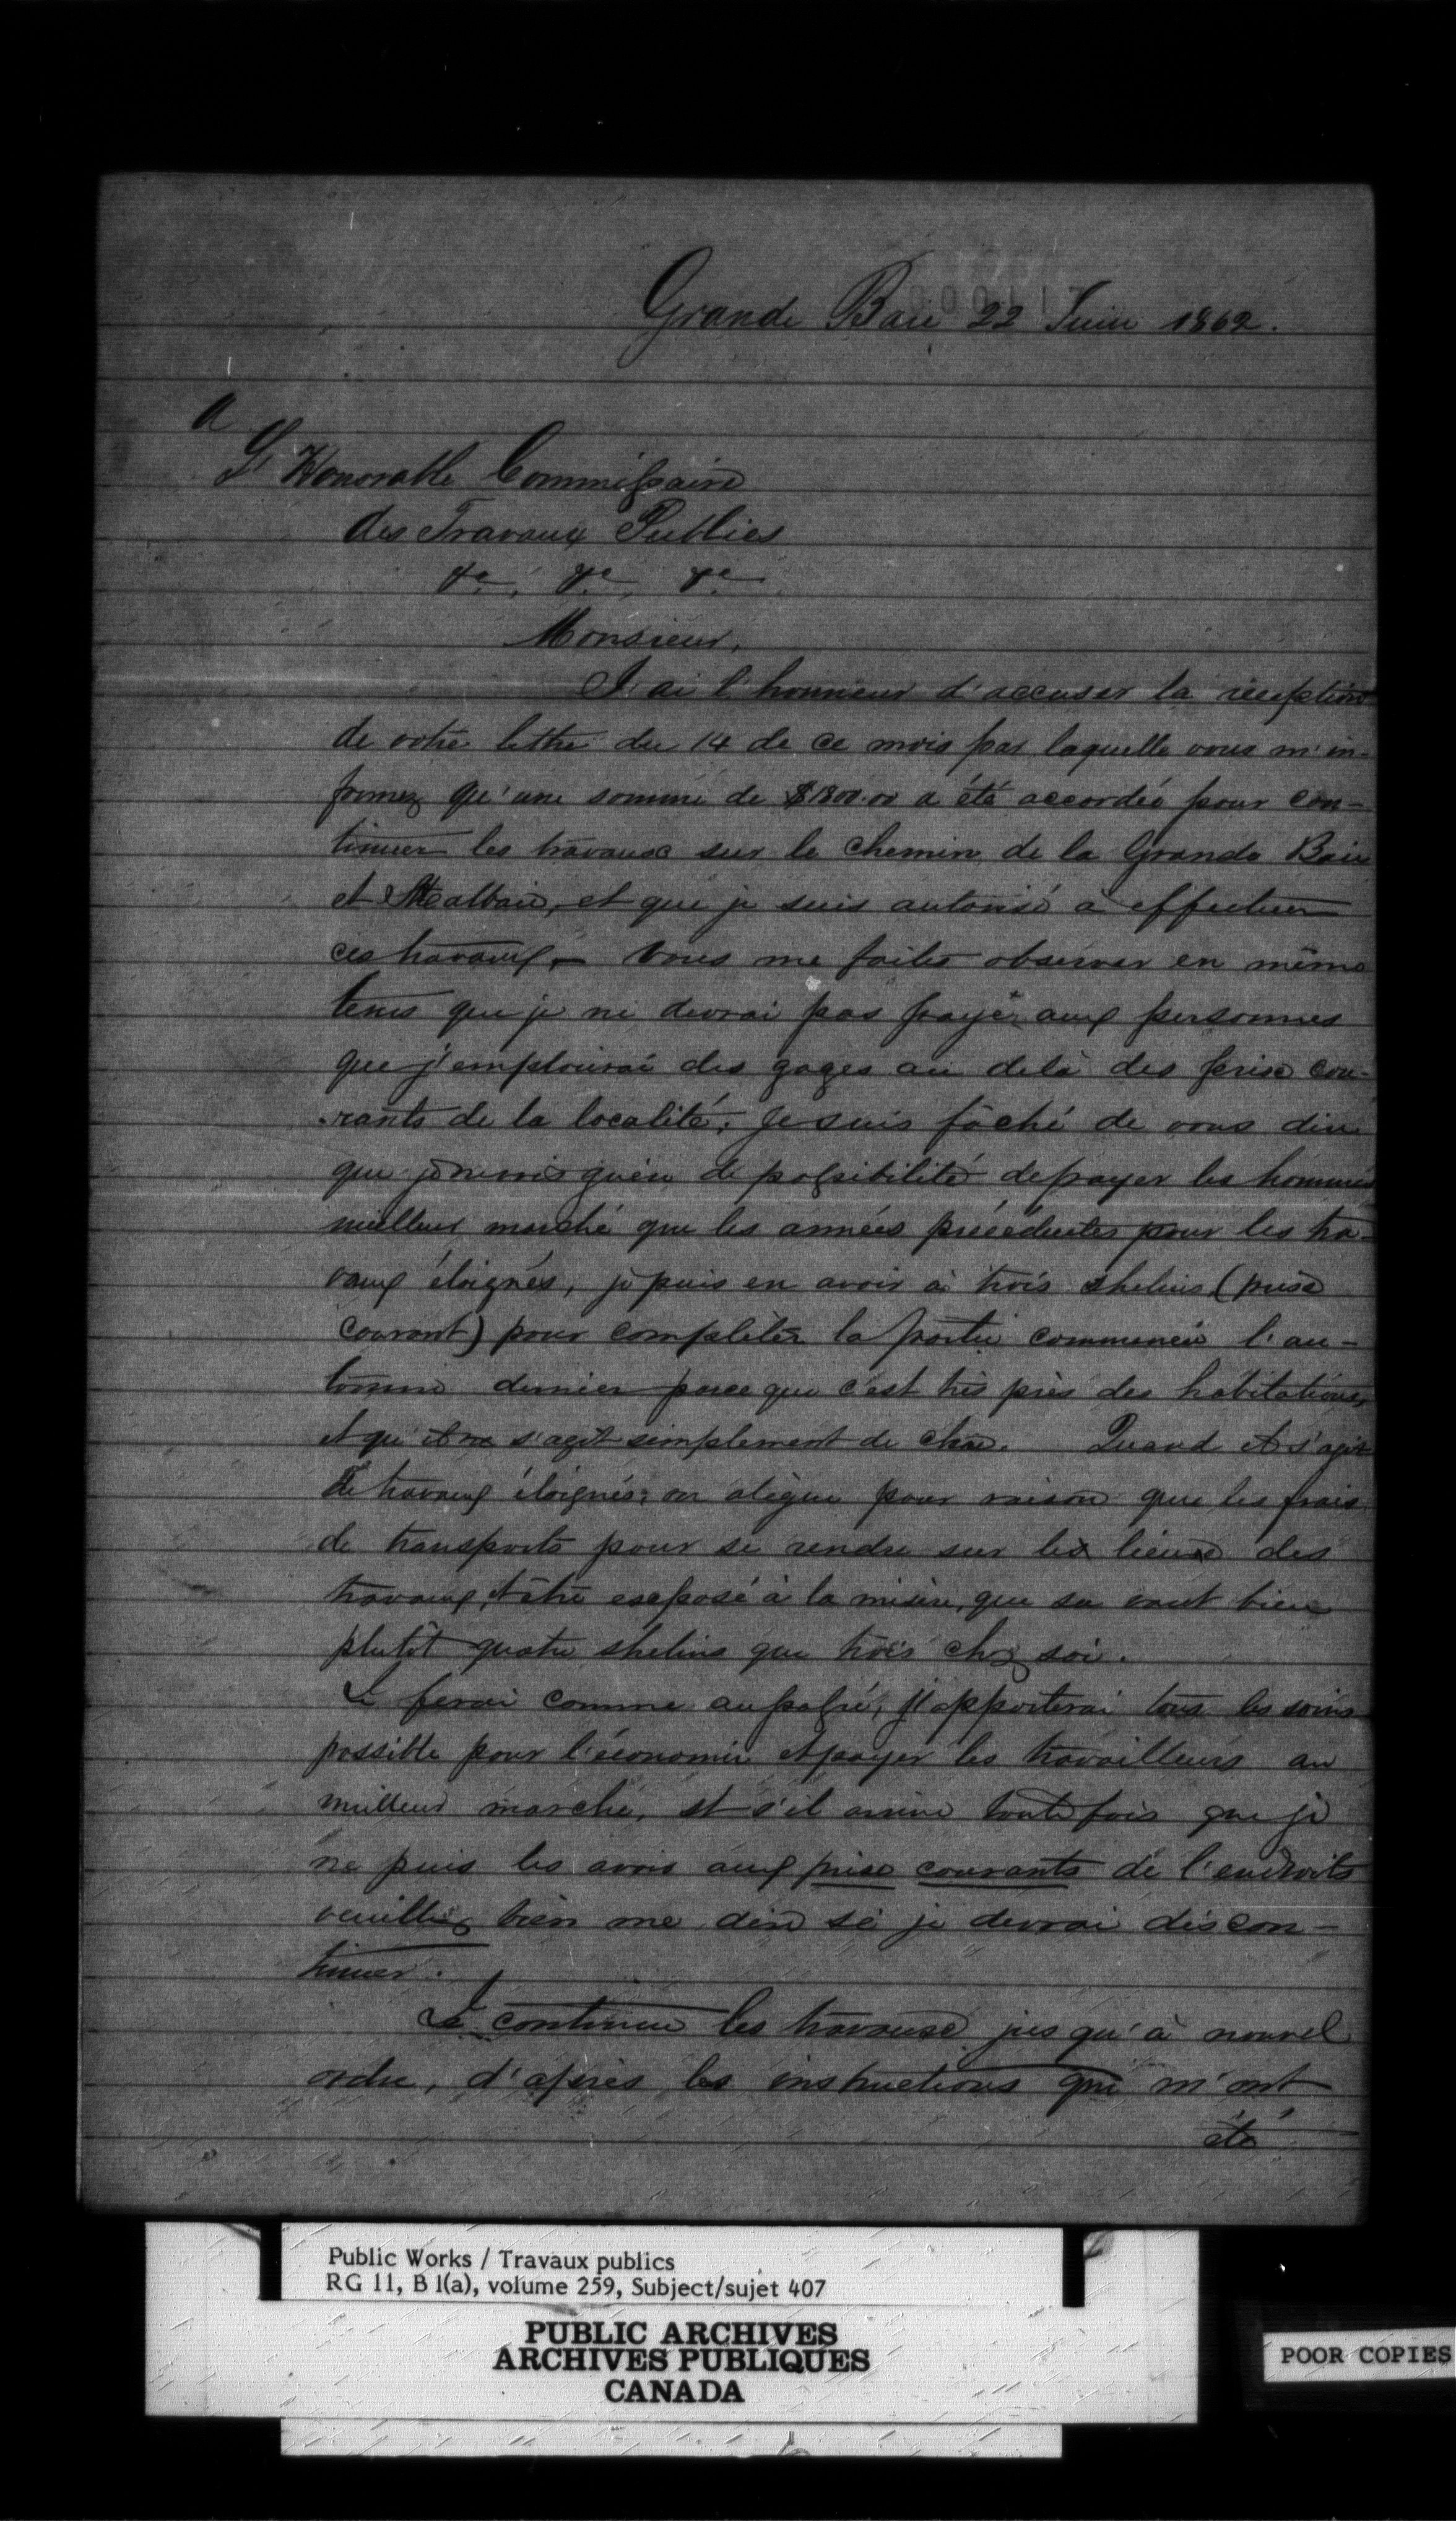 Grande Baie 22 Juin 1862.
A
L'Honorable Commissaire
des Travaux Publics
&c, &c, &c
Monsieur,
J'ai l'honneur d'accuser la réception
de votre lettre du 14 de ce mois par laquelle vous m'in-
formez qu'une somme de $1800.00 a été accordée pour con-
tinuer les travaux sur le chemin de la Grande Baie
et Malbaie, et que je suis autorisé à effectuer
ces travaux — Vous me faites observer en même
tems que je ne devrai pas payé aux personnes
que j'emplouirai des gages au delà des prix cou-
rants de la localité; Je suis fâché de vous dire
que je ne vois guère de possibilité de payer les hommes
meilleur marché que les années précédentes pour les tra-
vaux éloignés, je puis en avoir à trois shelins (prix
courant) pour complèter la partie commencée l'au-
tomne dernier parce que c'est très près des habitations,
et qu'il ne s'agit simplement de Quand il s'agit
de travaux éloignés; on alègue pour raison que les frais
de transports pour se rendre sur les lieux des
travaux, et être exposé à la misère, que sa vaut bien
plutôt quatre shelins que trois chez soi.
Je ferai comme au passé, j'apporterai tous les soins
possible pour l'économie et payer les travailleurs au
meilleur marché, et s'il arrive toutefois que je
ne puis les avoir aux prix courants de l'endroits
veuillez bien me dire si je devrai discon-
tinuer.
Je continue les travaux jusqu'à nouvel
ordre, d'après les instructions qui m'ont
été
Public Works / Travaux publics
RG 11, B 1(a), volume 259, Subject/sujet 407
PUBLIC ARCHIVES
ARCHIVES PUBLIQUES
CANADA
POOR COPIES